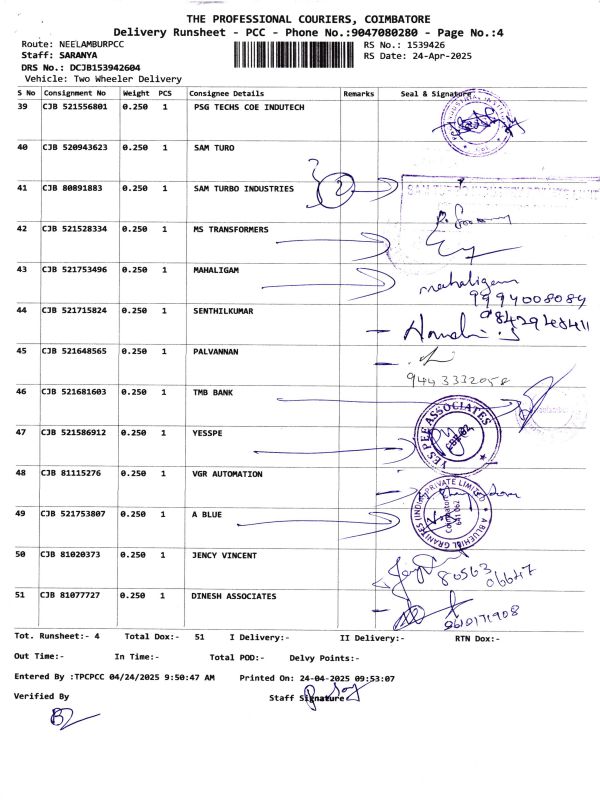 THE PROFESSIONAL COURIERS, COIMBATORE
Delivery Runsheet - PCC - Phone No.:9047080280 - Page No.:4
Route: NEELAMBURPCC RS No.: 1539426
Staff: SARANYA RS Date: 24-Apr-2025
DRS No.: DCJB153942604
Vehicle: Two Wheeler Delivery
S No Consignment No Weight PCS Consignee Details Remarks Seal & Signature
39 CJB 521556801 0.250 1 PSG TECHS COE INDUTECH
40 CJB 520943623 0.250 1 SAM TURO
41 CJB 80891883 0.250 1 SAM TURBO INDUSTRIES 2
42 CJB 521528334 0.250 1 MS TRANSFORMERS
43 CJB 521753496 0.250 1 MAHALIGAM mahaligam
9994008084
44 CJB 521715824 0.250 1 SENTHILKUMAR
45 CJB 521648565 0.250 1 PALVANNAN
9443332058
46 CJB 521681603 0.250 1 TMB BANK
47 CJB 521586912 0.250 1 YESSPE YES PEE ASSOCIATES
48 CJB 81115276 0.250 1 VGR AUTOMATION
49 CJB 521753807 0.250 1 A BLUE A BLUEHILL GRANITES (INDIA) PRIVATE LIMITED
Coimbatore
641 062
50 CJB 81020373 0.250 1 JENCY VINCENT
80563
06647
51 CJB 81077727 0.250 1 DINESH ASSOCIATES
Tot. Runsheet:- 4 Total Dox:- 51 I Delivery:- II Delivery:- RTN Dox:-
Out Time:- In Time:- Total POD:- Delvy Points:-
Entered By :TPCPCC 04/24/2025 9:50:47 AM Printed On: 24-04-2025 09:53:07
Verified By Staff Signature